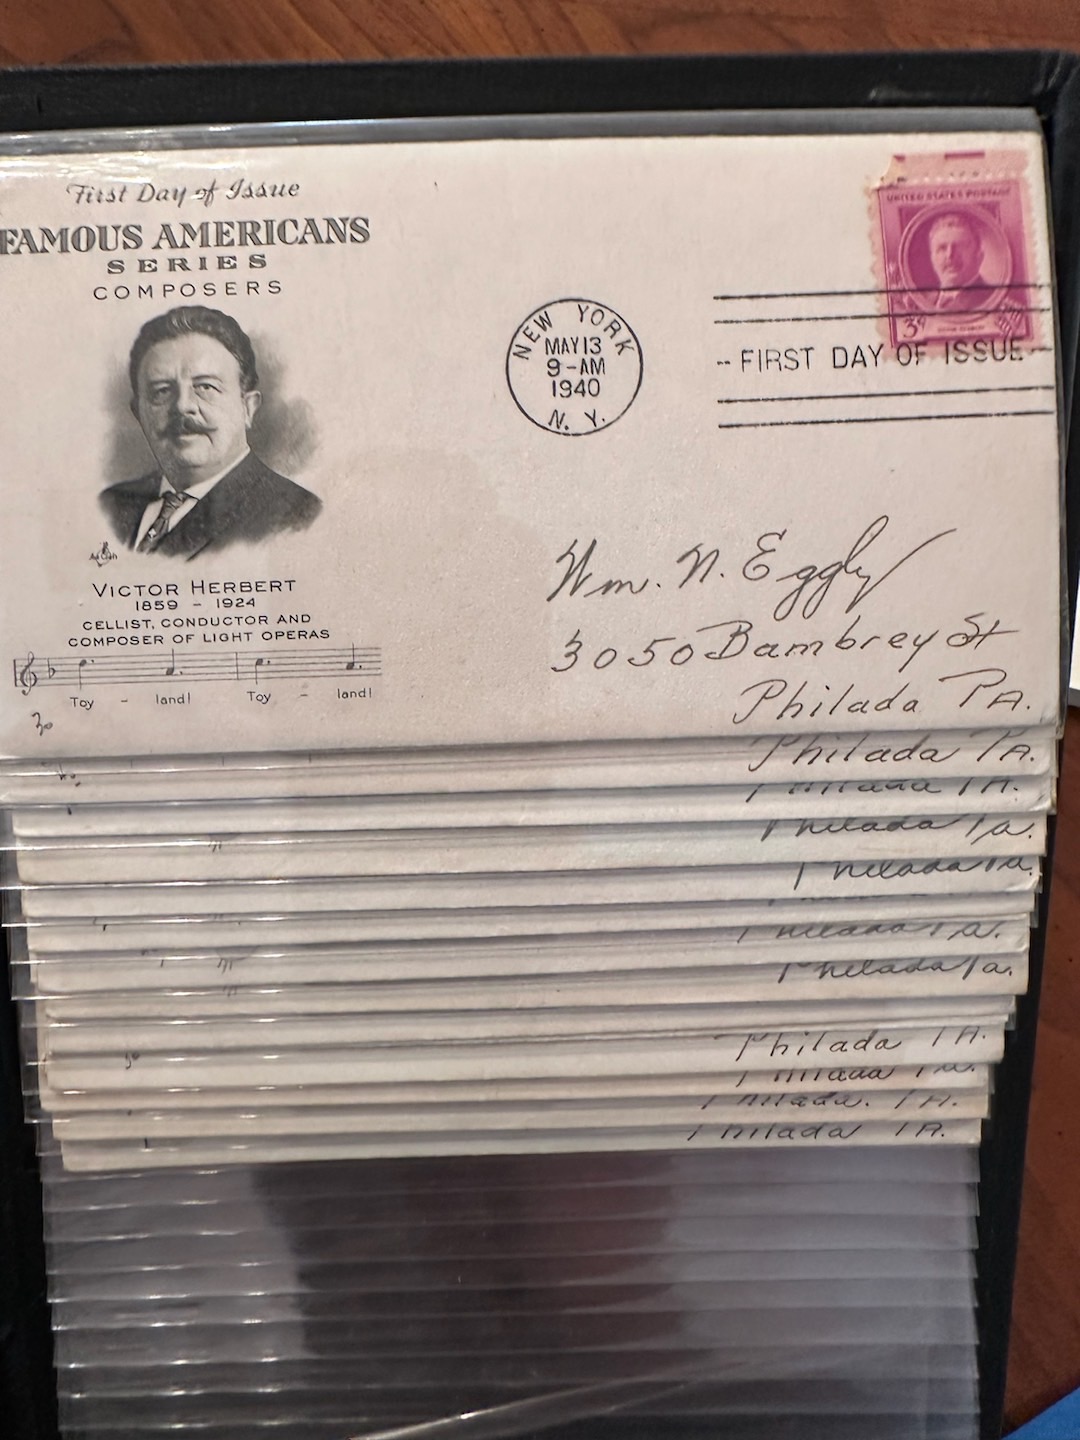 First Day of Issue
FAMOUS AMERICANS
SERIES
COMPOSERS
UNITED STATES POSTAGE
3¢
NEW YORK
MAY 13
9-AM
1940
N. Y.
FIRST DAY OF ISSUE
VICTOR HERBERT
1859 - 1924
CELLIST, CONDUCTOR AND
COMPOSER OF LIGHT OPERAS
Toy - land! Toy - land!
30
Wm. N. Eggly
3050 Bambrey St
Philada PA.
Philada PA.
Philada PA.
Philada Pa.
Philada Pa.
Philada Pa.
Philada Pa.
Philada PA.
Philada Pa.
Philada. PA.
Philada PA.